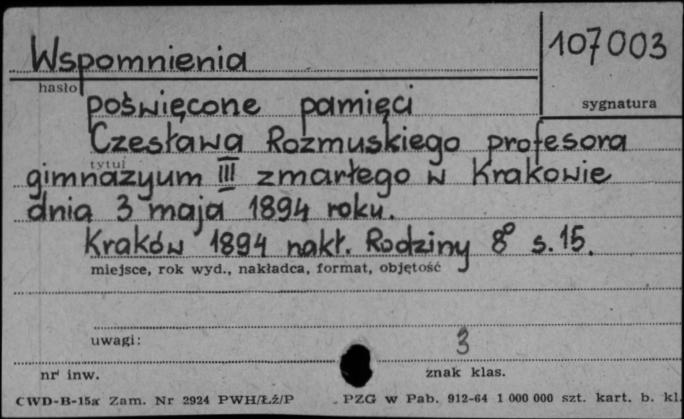 Wspomnienia
107003
hasło
sygnatura
poświęcone pamięci
Czesława Rozmuskiego profesora
tytuł
gimnazyum III zmarłego w Krakowie
dnia 3 maja 1894 roku.
Kraków 1894 nakł. Rodziny 8° s. 15.
miejsce, rok wyd., nakładca, format, objętość
uwagi:
3
nr inw.
znak klas.
CWD-B-15a Zam. Nr 2924 PWH/Łż/P
PZG w Pab. 912-64 1 000 000 szt. kart. b. kl.